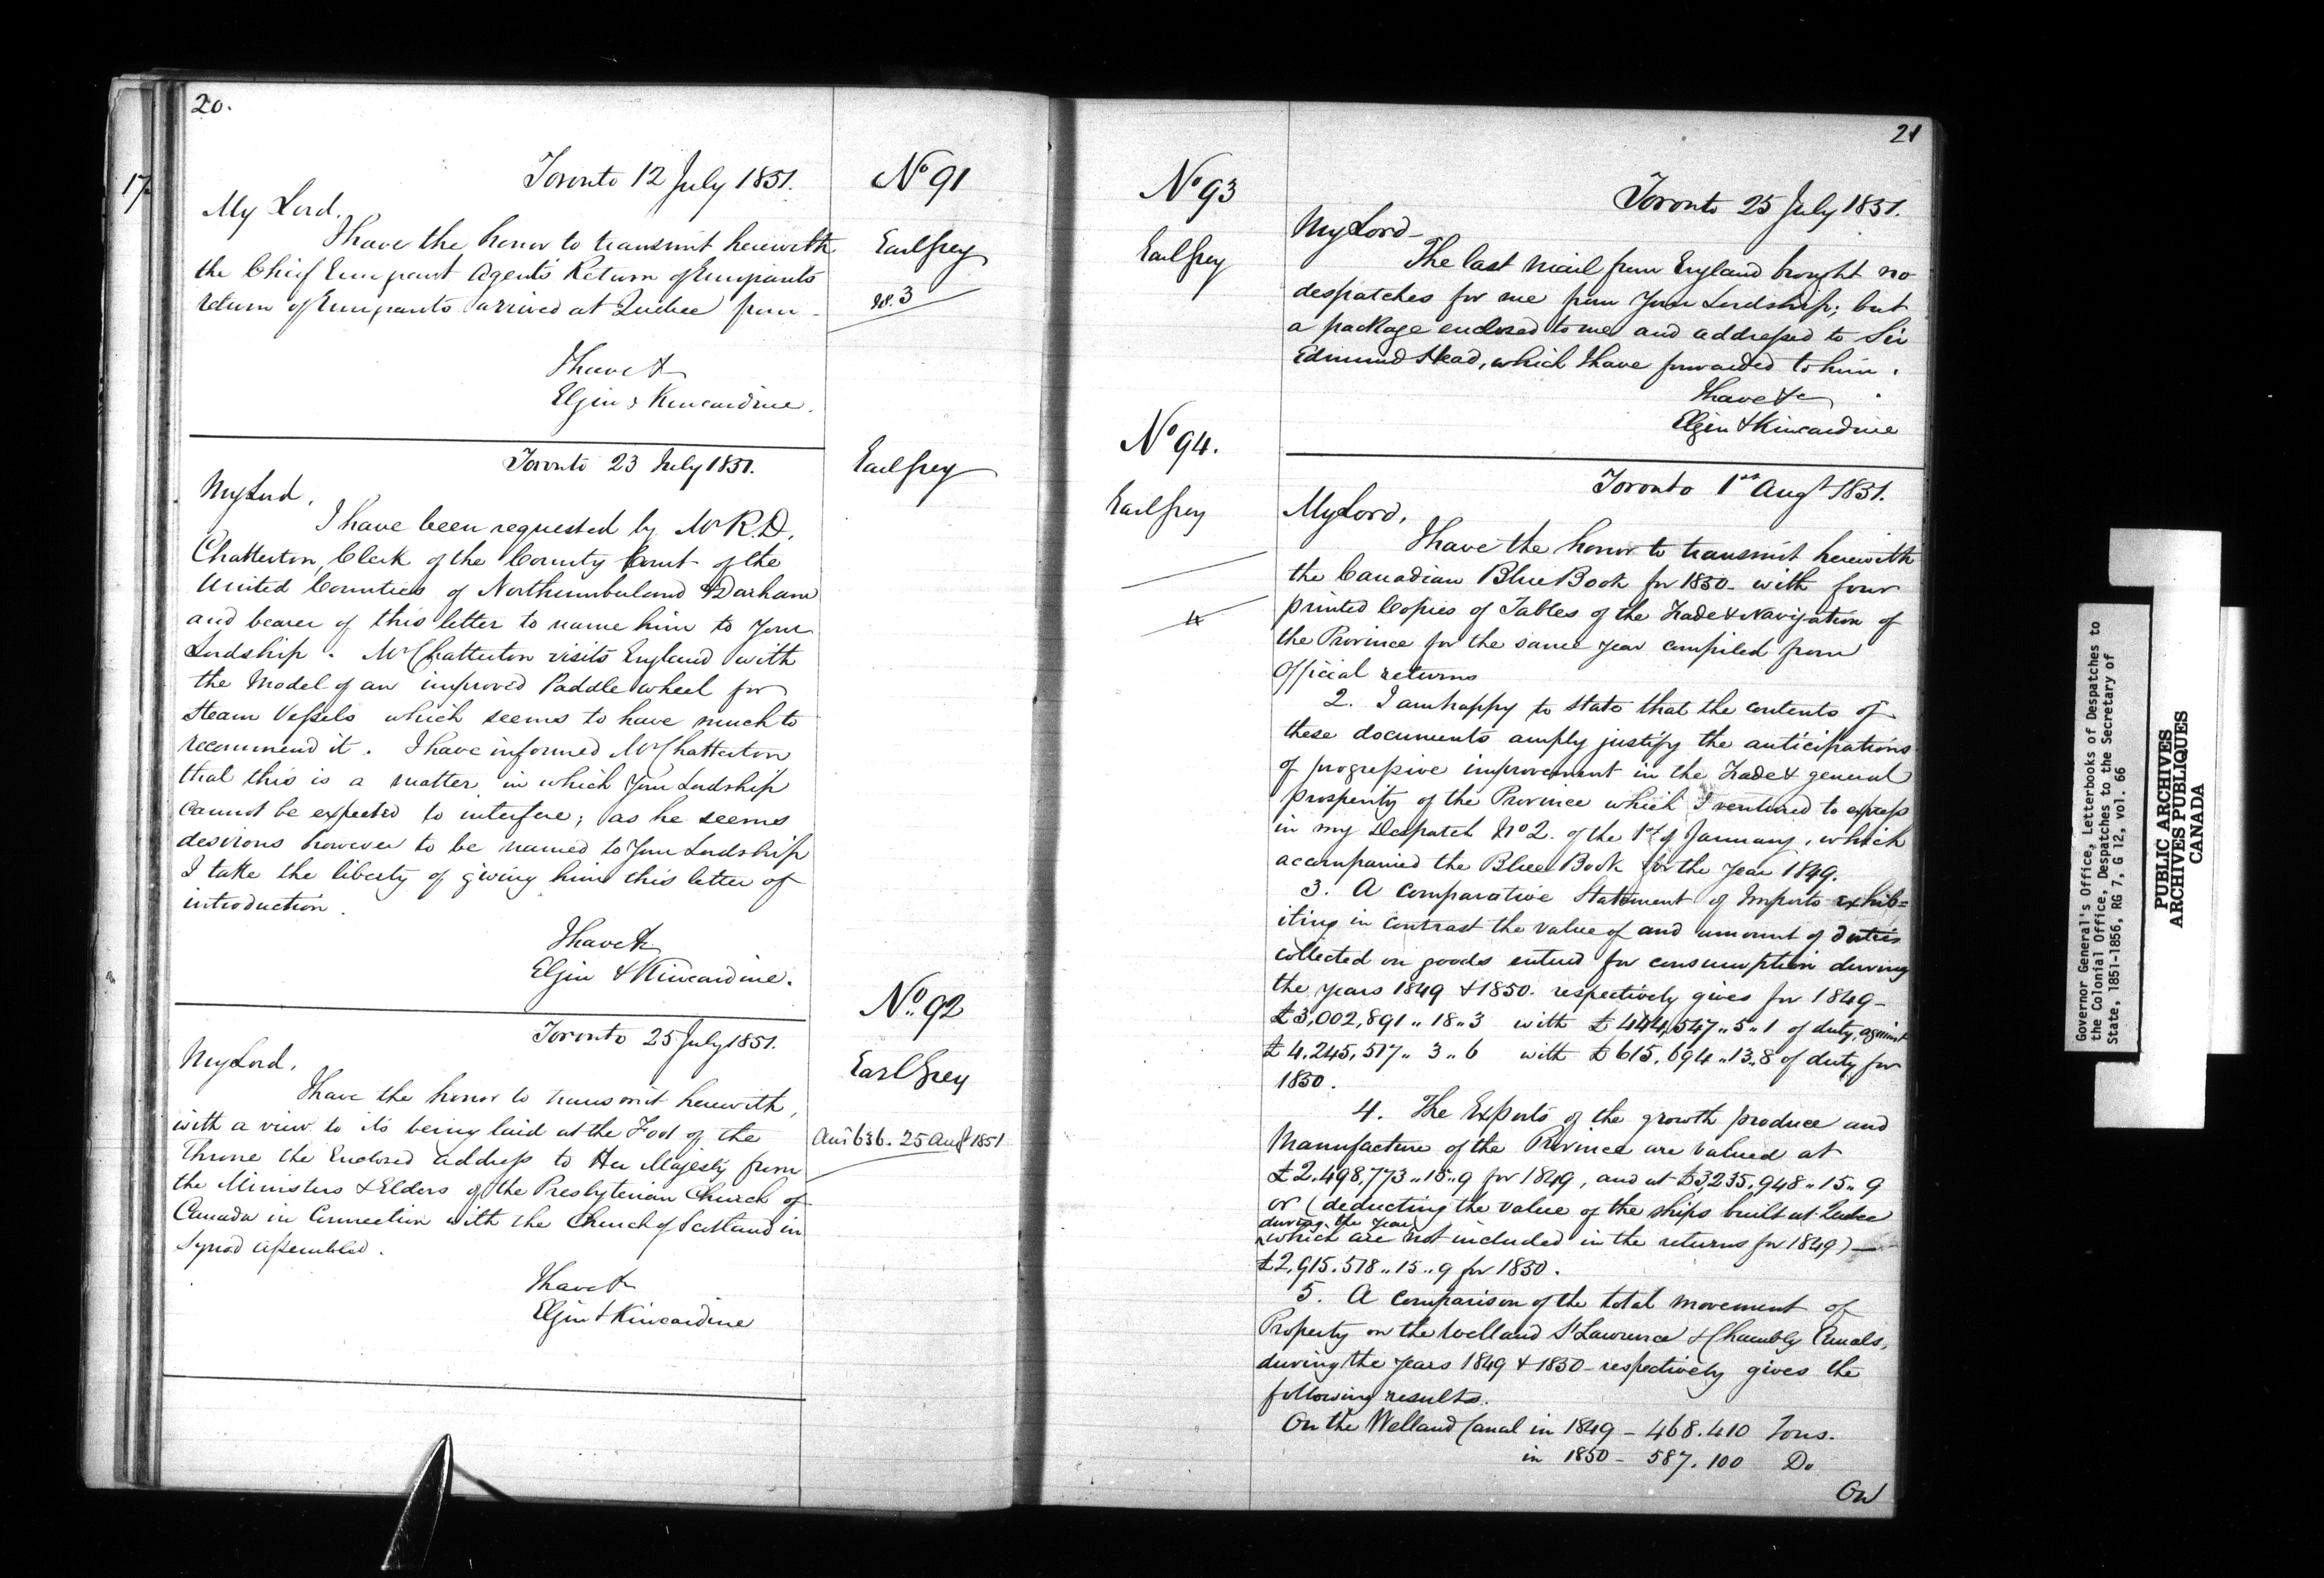 20.
17
Toronto 12 July 1851.
No 91
My Lord,
I have the honor to transmit herewith
Earl Grey
the Chief Emigrant Agent's Return of Emigrants
return of Emigrants arrived at Quebec from
3
I have &
Elgin & Kincardine.
Toronto 23 July 1851.
Earl Grey
My Lord,
I have been requested by Mr R.D.
Chatterton, Clerk of the County Court of the
United Counties of Northumberland & Darham
and bearer of this letter to name him to Your
Lordship. Mr Chatterton visits England with
the Model of an improved Paddle wheel for
Steam Vessels which seems to have much to
recommend it. I have informed Mr Chatterton
that this is a matter in which Your Lordship
cannot be expected to interfere; as he seems
desirous however to be named to Your Lordship
I take the liberty of giving him this letter of
introduction.
I have &
Elgin & Kincardine.
No. 92
Toronto 25 July 1851.
Earl Grey
My Lord,
I have the honor to transmit herewith,
with a view to its being laid at the Foot of the
Ansd 636. 25 Augt 1851
Throne the Enclosed address to Her Majesty from
the Ministers & Elders of the Presbyterian Church of
Canada in Connection with the Church of Scotland in
Synod assembled.
I have &
Elgin & Kincardine
21
No 93
Toronto 25 July 1851.
Earl Grey
My Lord–
The last mail from England brought no
despatches for me from Your Lordship; but
a package enclosed to me and addressed to Sir
Edmund Head, which I have forwarded to him.
I have &c
Elgin & Kincardine
No 94.
Toronto 1st Augt 1851.
Earl Grey
My Lord,
I have the honor to transmit herewith
the Canadian Blue Book for 1850– with four
4
printed Copies of Tables of the Trade & Navigation of
the Province for the same year compiled from
Official returns
2. I am happy to state that the contents of
these documents amply justify the anticipations
of progressive improvement in the Trade & general
prosperity of the Province which I ventured to express
in my Despatch No 2. of the 1st of January, which
accompanied the Blue Book for the year 1849.
3. A comparative Statement of Imports exhib=
iting in contrast the value of and amount of duties
collected on goods entered for consumption during
the years 1849 & 1850. respectively gives for 1849–
£3,002,891 „ 18 „ 3 with £444,547 „ 5 „ 1 of duty, against
£4,245,517 „ 3 „ 6 with £615,694 „ 13 „ 8 of duty for
1850.
4. The Exports of the growth produce and
Manufacture of the Province are valued at
£2,498,773 „ 15 „ 9 for 1849, and at £3,235,948 „ 15 „ 9
or (deducting the value of the ships built at Quebec
during the year
which are not included in the returns for 1849)–
£2,915,578 „ 15 „ 9 for 1850.
5. A Comparison of the total movement of
Property on the Welland St Lawrence & Chambly Canals,
during the years 1849 & 1850– respectively gives the
following results.
On the Welland Canal in 1849 – 468.410 Tons.
in 1850 – 587.100 Do
On
Governor General's Office, Letterbooks of Despatches to
the Colonial Office, Despatches to the Secretary of
State, 1851-1856, RG 7, G 12, vol. 66
PUBLIC ARCHIVES
ARCHIVES PUBLIQUES
CANADA